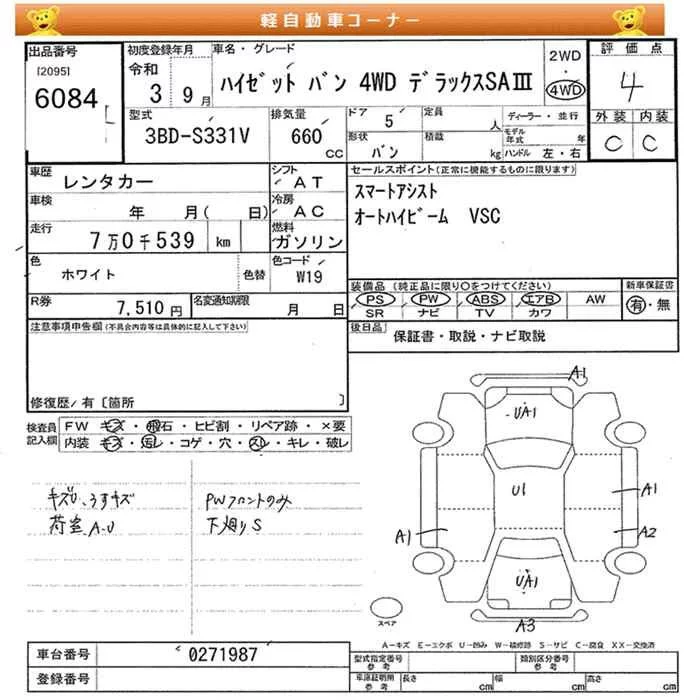 軽自動車コーナー
出品番号
[2095]
6084
初度登録年月
令和
3 9月
車名・グレード
ハイゼット バン 4WD デラックスSAⅢ
2WD
・
4WD
評価点
4
外装 内装
C C
型式
3BD-S331V
排気量
660
CC
ドア 5
定員 人
形状 バン
積載 kg
ディーラー・並行
モデル年式 年
ハンドル 左・右
車歴
レンタカー
シフト
AT
車検
年 月( 日)
冷房
AC
走行
7万0千539 km
燃料
ガソリン
色
ホワイト
色替
色コード
W19
R券
7,510円
名変通知期限
月 日
セールスポイント(正常に機能するものに限ります)
スマートアシスト
オートハイビーム VSC
装備品(純正品に限り○をつけてください)
PS PW ABS エアB AW
SR ナビ TV カワ
新車保証書
有・無
後日品
保証書・取説・ナビ取説
注意事項申告欄(不具合内容等は具体的に記入して下さい)
修復歴/有〔箇所 〕
検査員記入欄
FW キズ・飛石・ヒビ割・リペア跡・×要
内装 キズ・汚レ・コゲ・穴・スレ・キレ・破レ
キズU、うすキズ
荷室 A-U
PWフロントのみ
下廻りS
A1
UA1
U1
A1
A1
A2
UA1
A3
スペア
A-キズ E-エクボ U-凹み W-補修跡 S-サビ C-腐食 XX-交換済
車台番号
0271987
登録番号
型式指定番号
参考
類別区分番号
参考
車庫証明用
参考
長さ cm
幅 cm
高さ cm